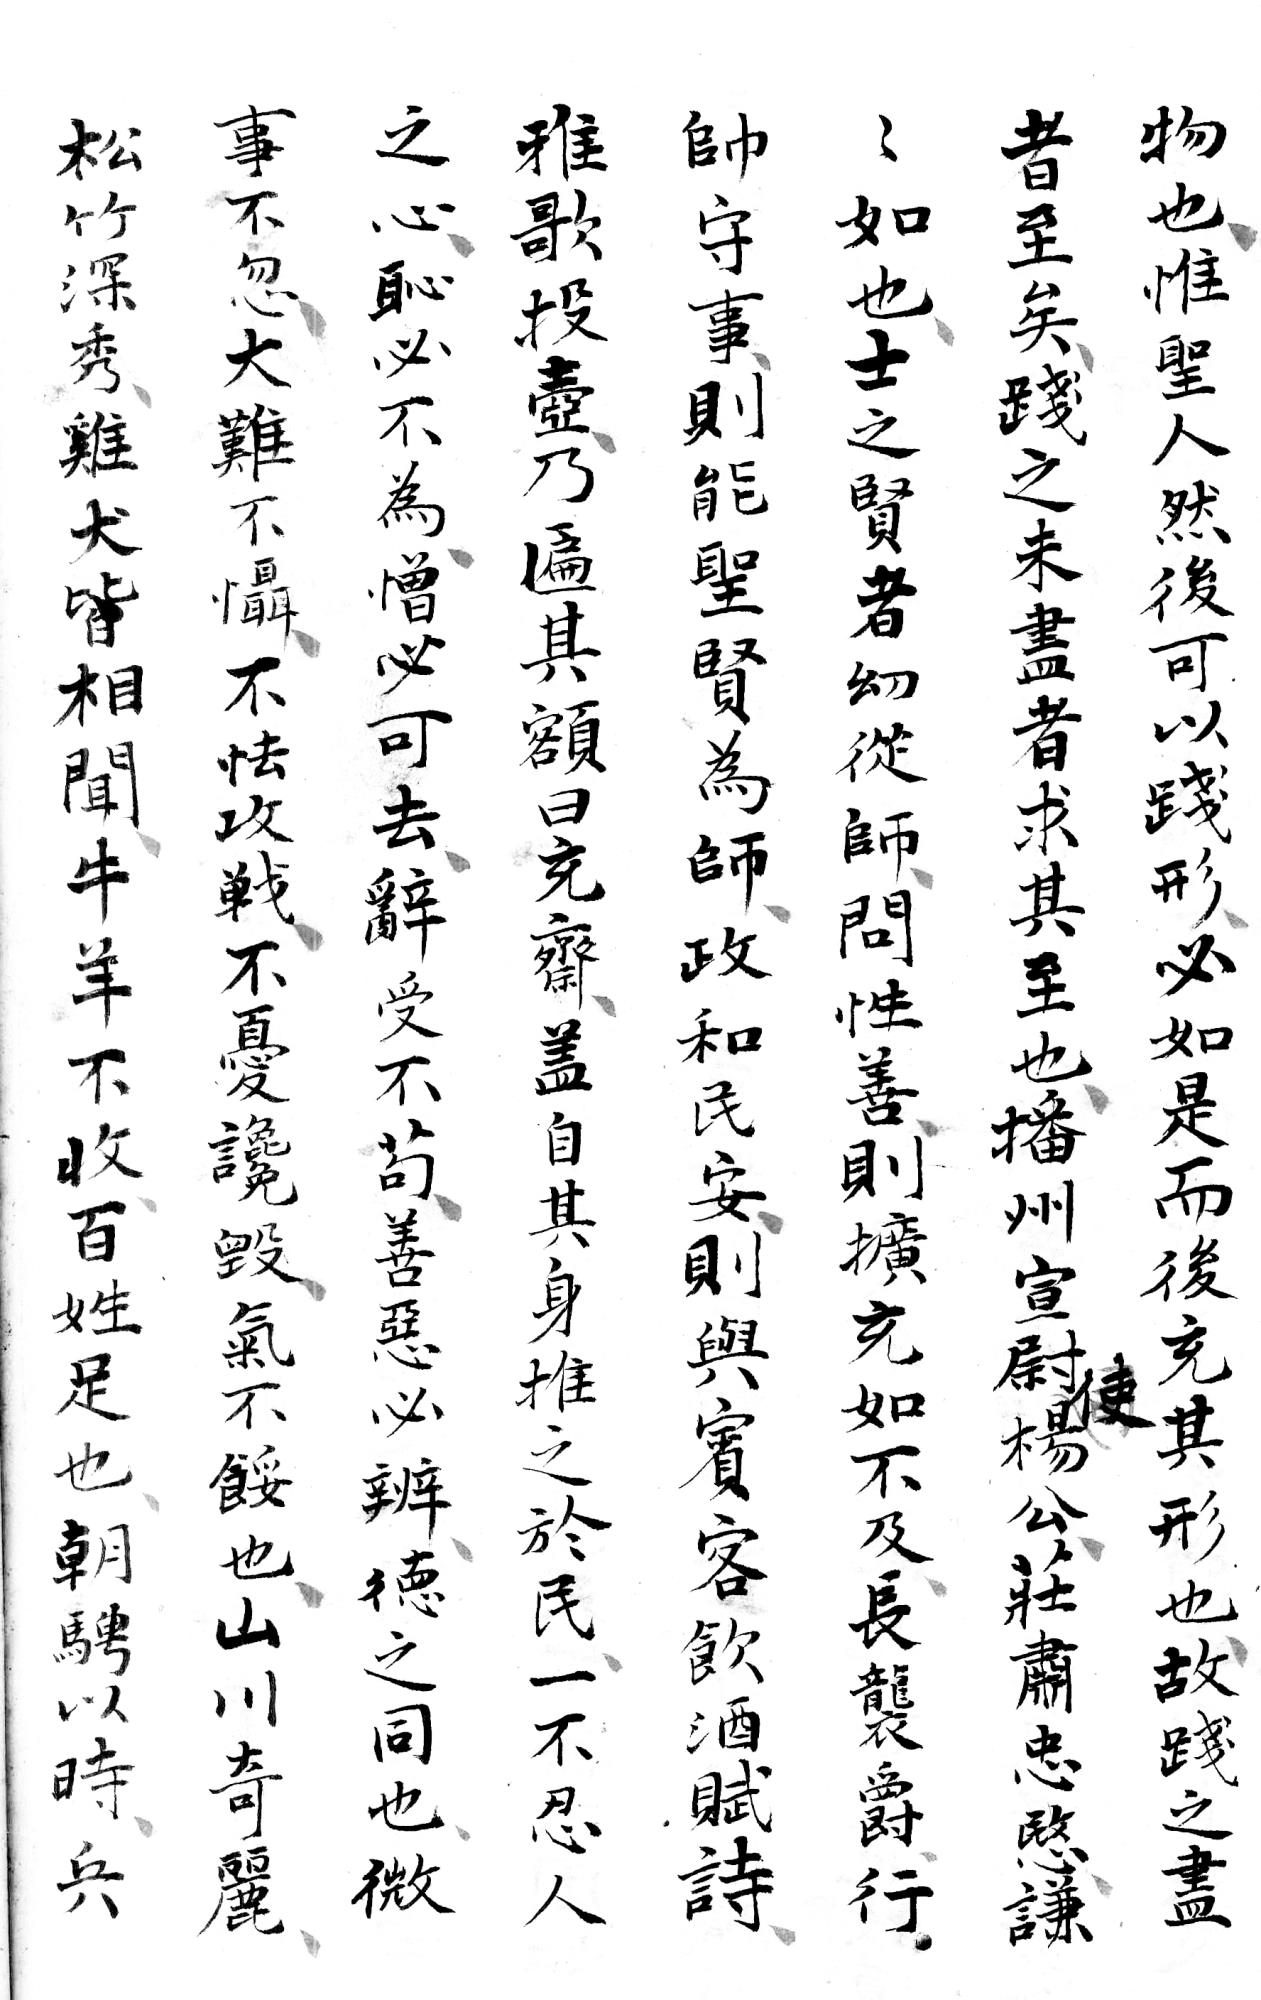 物也惟聖人然後可以踐形必如是而後充其形也故踐之盡
者至矣踐之未盡者求其至也播州宣尉使楊公莊肅忠愍謙
〻如也士之賢者幼從師問性善則擴充如不及長襲爵行
帥守事則能聖賢為師政和民安則與賓客飲酒賦詩
雅歌投壺乃匾其額曰充齋蓋自其身推之於民一不忍人
之心恥必不為憎必可去辭受不苟善惡必辨德之同也微
事不忽大難不懾不怯攻戦不憂讒毀氣不餒也山川奇麗
松竹深秀雞犬皆相聞牛羊不收百姓足也朝騁以時兵